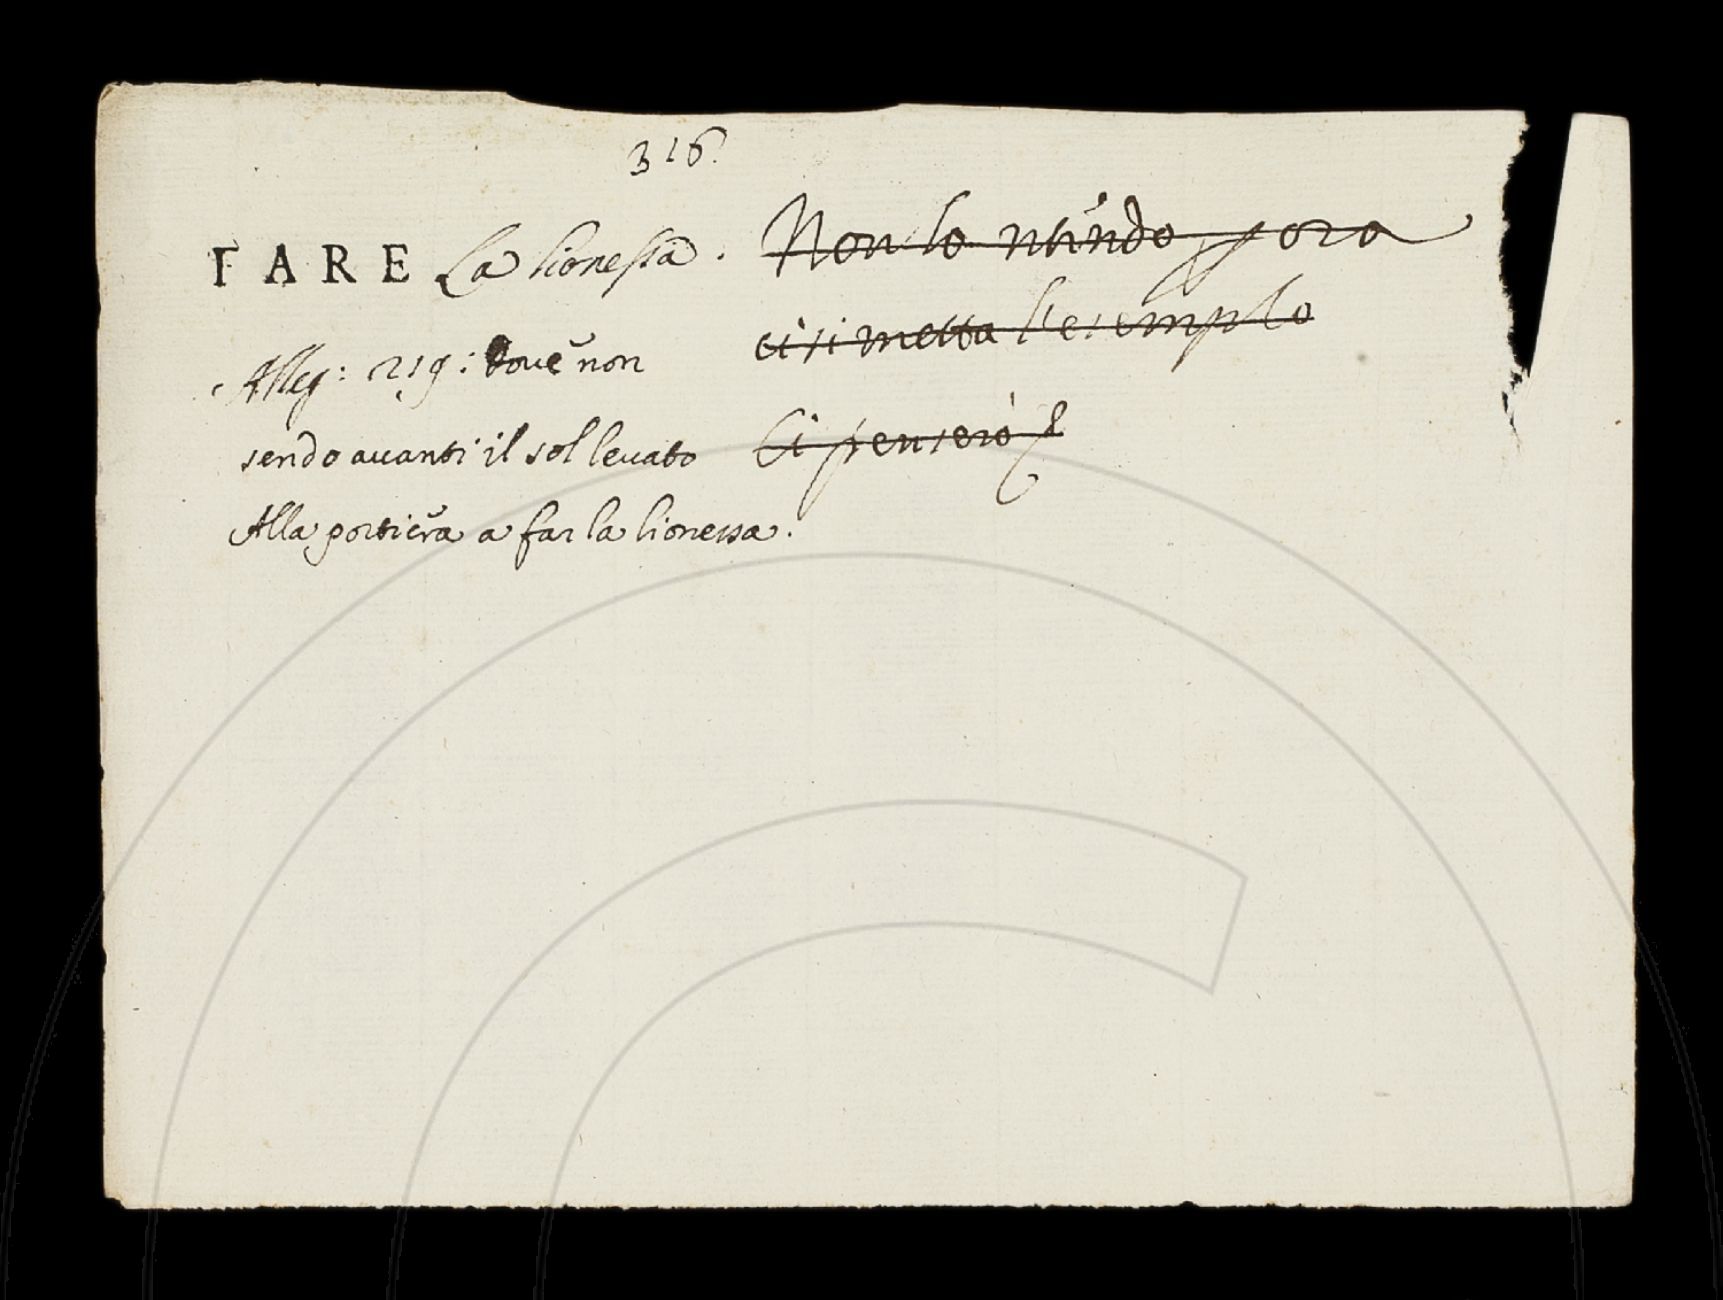 316.
FARE La lionessa. Non lo intendo p ora
Alleg: 219: Dove non ci si metta l'esemplo
sendo auanti il sol leuato Ci penserò
Alla portiera a far la lionessa.